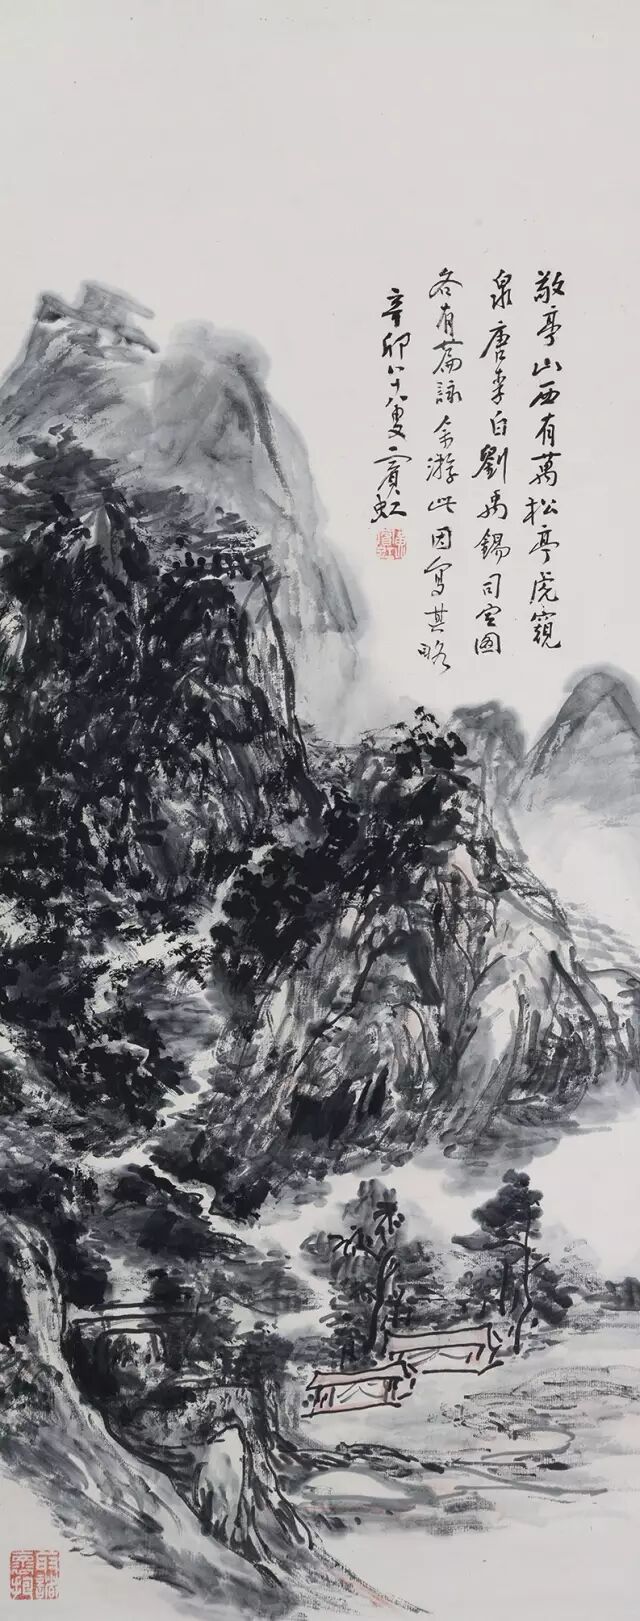 敬亭山西有萬松亭虎窺
泉唐李白劉禹錫司空圖
各有篇詠余游此因寫其略
辛卯八十八叟賓虹